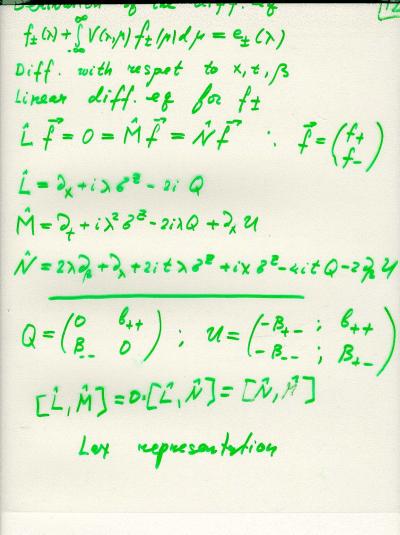 Derivation of the diff. eq
f±(λ)+∫_{-∞}^{∞} V(λ,μ) f±(μ) dμ = e±(λ)
Diff. with respet to x, t, β
Linear diff. eq for f±
L̂ f⃗ = 0 = M̂ f⃗ = N̂ f⃗ ; f⃗ = (f₊ f₋)
L̂ = ∂ₓ + iλ σᶻ - 2i Q
M̂ = ∂ₜ + iλ² σᶻ - 2iλQ + ∂ₓ U
N̂ = 2λ∂_β + ∂_λ + 2itλ σᶻ + ix σᶻ - 4it Q - 2∂_β U
Q = (0 b₊₊ B₋₋ 0) ; U = (-B₊₋ ; b₊₊ -B₋₋ ; B₊₋)
[L̂, M̂] = 0 = [L̂, N̂] = [N̂, M̂]
Lax representation